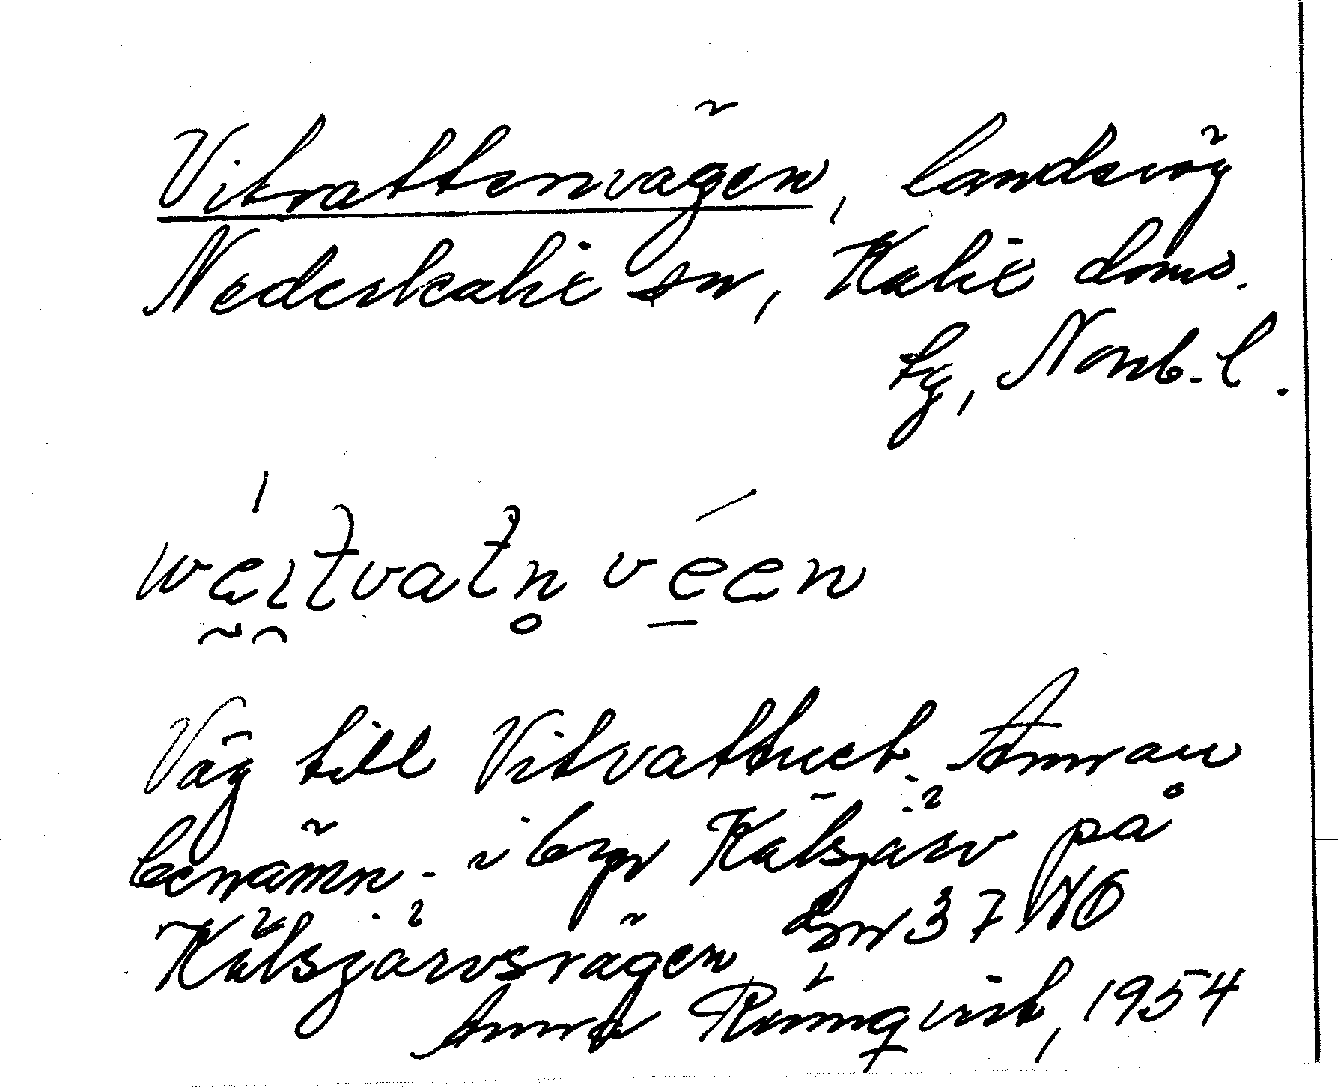 Vitvattenvägen, landsväg
Nederkalix sn, Kalix doms.
tg, Norrb. l.
wéitvatn véen
Väg till Vitvattnet. Annan
benämn. i byn Kälsjärv på
Kälsjärvsvägen 37 NO
Anna Rönnqvist, 1954